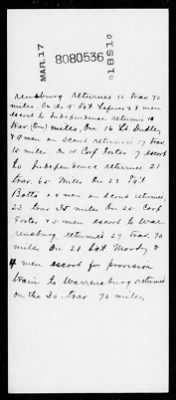 MAR. 17
8080536
1891
rensburg returned 10 trav 70
miles. On the 9" Sgt & 8 men
escort to Independence returned 10
trav. miles, On 16 Lt Dudley
& 9 men on scout returned 17 trav.
10 miles. On 20 Corp Foster 7 escort
to Independence returned 21
trav. 60 Miles On 22 Sgt
Botts & men on scout returned,
23 trav 35 miles On 25 Corp
Foster & 5 men escort to War
rensburg returned 27 trav. 70
miles On 28 Sgt Moody &
4 men escort for provision
train to Warrensburg returned
on the 30. trav 70 miles.